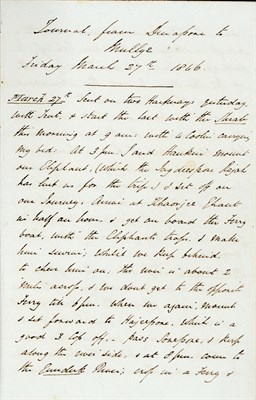 Journal, from Dinapore to
Mullye
Friday March 27th 1846.
March 27th Sent on two Hackeries yesterday
with Tent, & start the last with the
this morning at 9 am: with 4 Coolies carrying
my bed: At 3 pm I and Hawkins mount
our Elephant, (which the Jugdespore Rajah
has lent us for the trip,) & set off on
our Journey: Arrive at Ghaut
in half an hour, & get on board the Ferry
boat, with the Elephants trap, & make
him swim; whilst we keep behind
to cheer him on. The river is about 2
miles across, & we dont get to the opposite
Ferry till 6 pm. When we again mount
& set forward to Hajeepore, which is a
good 3 Cos off. Pass Sonepore, & keep
along the river side, & at 8 pm come to
the Gunduk River, cross in a Ferry &